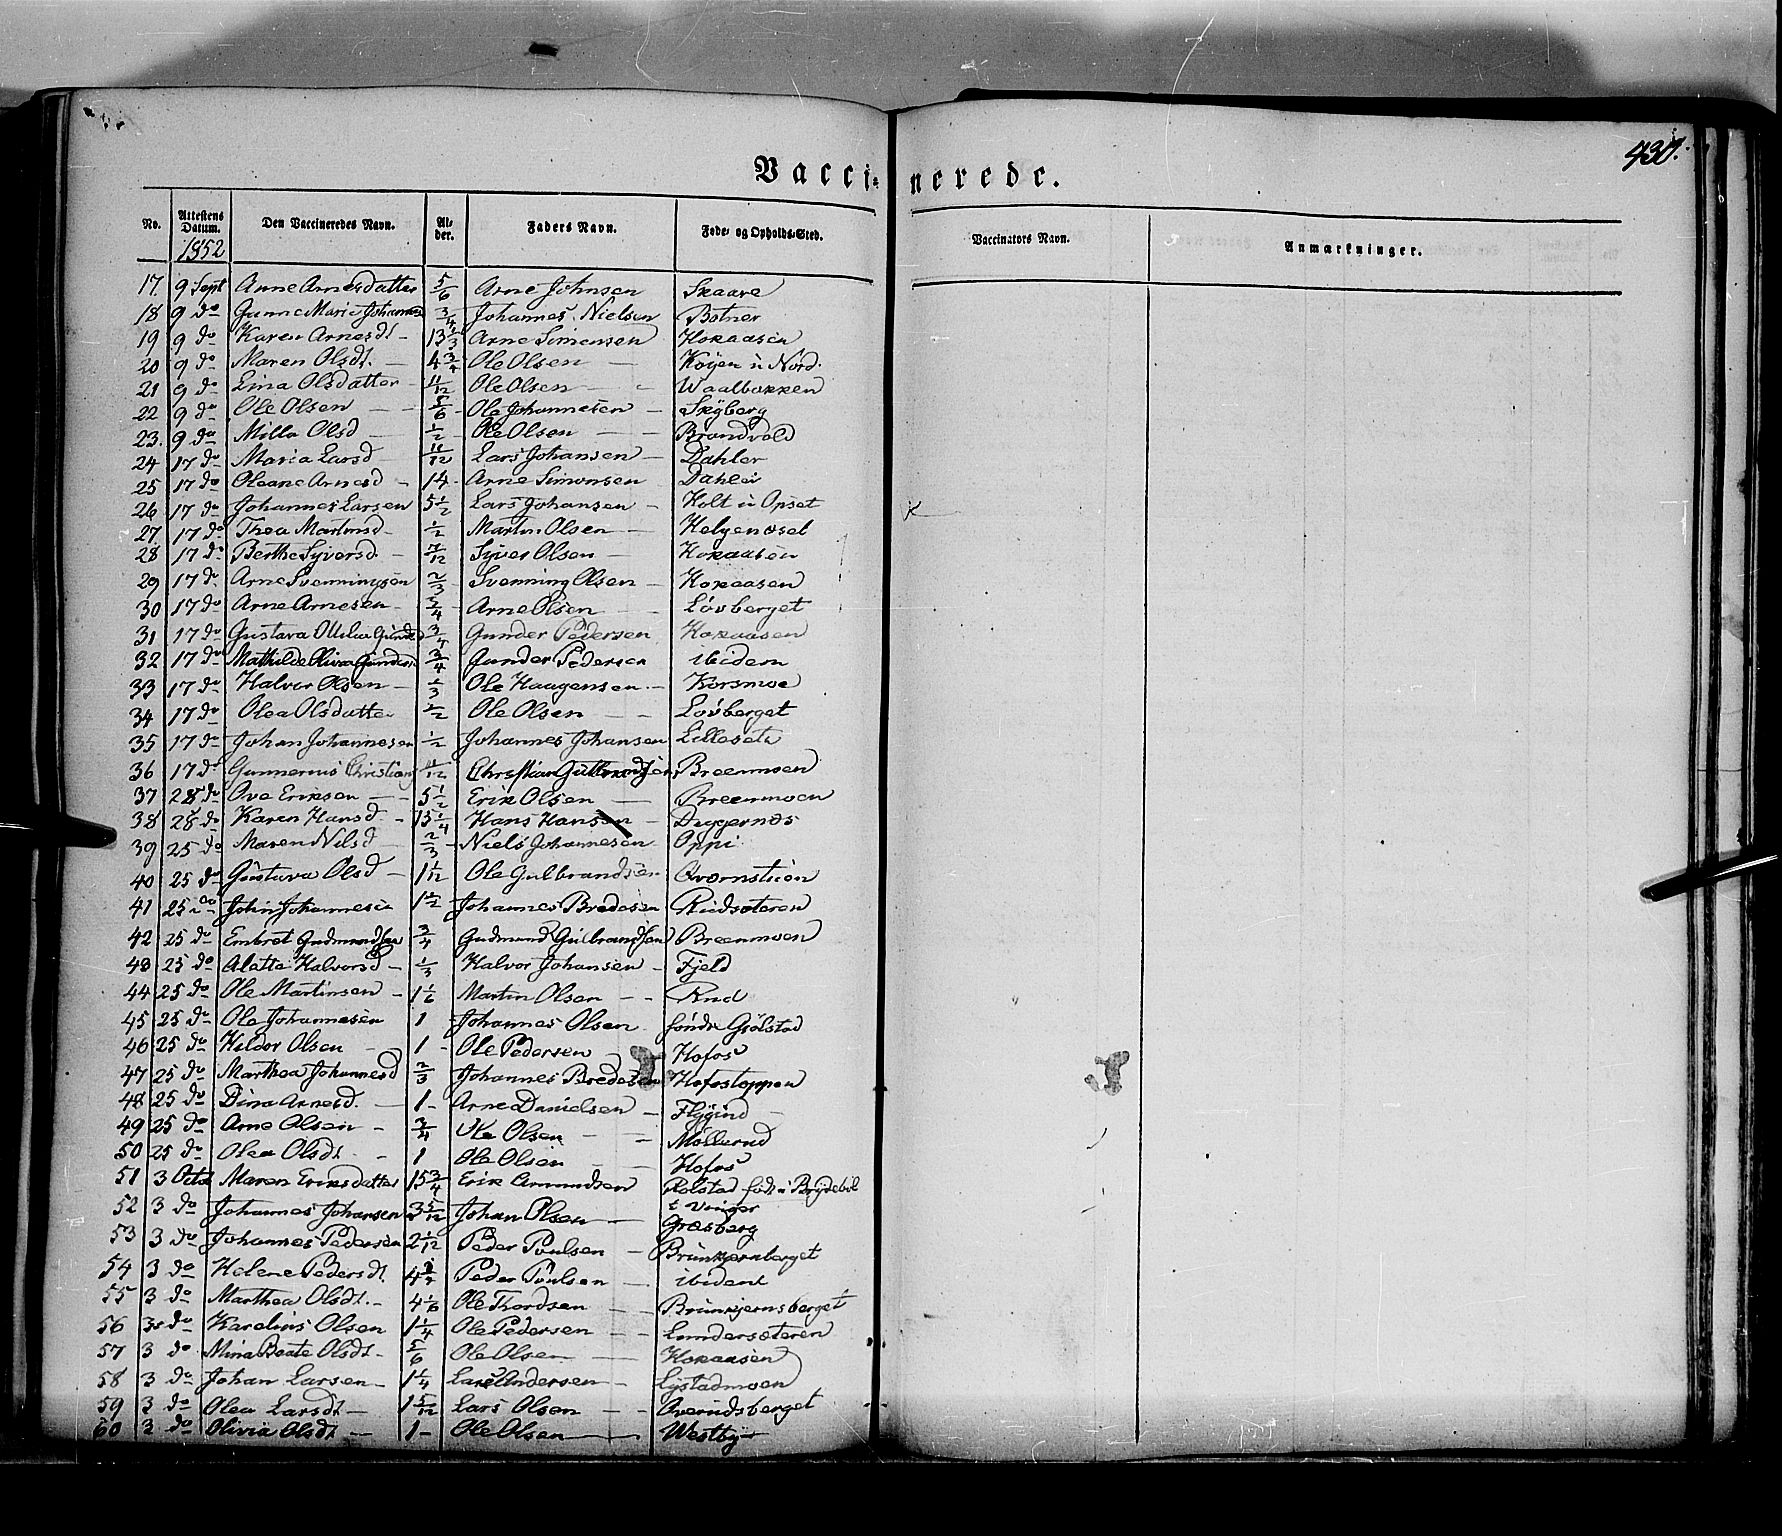 430.
Vaccinerede.
No. Attestens Datum. Den Vaccineredes Navn. Alder. Faders Navn. Føde- og Opholds-Sted. Vaccinators Navn. Anmærkninger.
1852
17. 9 Sept Anne Arnesdatter 5/6 Arne Johnsen Skaare
18 9 do Gunne Marie Johannes 3/4 Johannes Nielsen Botner
19 9 do Karen Arnesdt 13 2/3 Arne Simensen Hokaasen
20 9 do Maren Olsdt. 4 3/4 Ole Olsen Køyen i Nord.
21 9 do Lina Olsdatter 11/12 Ole Olsen Waalbakken
22 9 do Ole Olsen 5/6 Ole Johannesen Skyberg
23. 9 do Milla Olsd 1/2 Ole Olsen Brandvold
24 17 do Maria Larsd 11/12 Lars Johansen Dahler
25 17 do Oleane Arnesd 14 Arne Simonsen Dahler
26 17 do Johannes Larsen 5 1/2 Lars Johansen Holt i Opset
27 17 do Thea Martinsd 1/2 Martin Olsen Helgenoset
28 17 do Berthe Syversd. 7/12 Syver Olsen Hokaasen
29 17 do Arne Svenningsen 2/3 Svenning Olsen Hokaasen
30 17 do Arne Arnesen Arne Olsen Lövberget
31 17 do Gustava Ottilia Gunde 3/4 Gunder Pedersen Hokaasen
32 17 do Mathilde Oliva Gundersd 3/4 Gunder Pedersen ibidem
33 17 do Halvor Olsen 1/3 Ole Haagensen Korsmoe
34 17 do Olea Olsdatter 1/2 Ole Olsen Lövberget
35 17 do Johan Johannesen 1/2 Johannes Johansen Lilleseth
36 17 do Gunnerius Christians 11/12 Christian Gulbrandsen Breenmoen
37 28 do Ove Eriksen 5 1/2 Erik Olsen Breenmoen
38 28 do Karen Hansd. 15 1/4 Hans Hansen Duggernes
39 25 do Maren Nilsd 2/3 Niels Johannesen Oppi
40 25 do Gustava Olsd 1 1/12 Ole Gulbrandsen Qvernstuen
41 25 do John Johannesen 1 1/2 Johannes Bredesen Rudsæteren
42 25 do Embret Gudmundsen 3/4 Gudmund Gulbrandsen Breenmoen
43 25 do Alette Halvorsd 1/3 Halvor Johansen Fjeld
44 25 do Ole Martinsen 1 1/6 Martin Olsen Rud
45 25 do Ole Johannesen 1 Johannes Olsen søndr Grölstad
46 25 do Hildor Olsen 1 Ole Pedersen Hofos
47 25 do Marthea Johannesd 2/3 Johannes Bredesen Hofostoppen
48 25 do Dina Arnesd. 1 Arne Danielsen Flygind
49 25 do Arne Olsen 3/4 Ole Olsen Mollerud
50 25 do Olea Olsdt. 1 Ole Olsen Hofos
51 3 Octb Maren Eriksdatter 15 3/4 Erik Amundsen Rolstad født i Brydeböl
52 3 do Johannes Johansen 3 5/12 Johan Olsen i Vinger Græsberg
53 3 do Johannes Pedersen 2 1/12 Peder Poulsen Brunkjernberget
54 3 do Helene Pedersdt. Peder Poulsen ibident
55 3 do Marthea Olsdt. 4 1/6 Ole Thordsen Brunkjernsberget
56 3 do Karelius Olsen 1 1/4 Ole Pedersen Lundersæteren
57 3 do Mina Beate Olsdt. 5/6 Ole Olsen Hokaasen
58 3 do Johan Larsen 1 1/4 Lars Andersen Lystadmoen
59 3 do Olea Larsdt. 1 5/12 Lars Olsen Overudsberget
60 3 do Olivia Olsdt. 1 Ole Olsen Westby